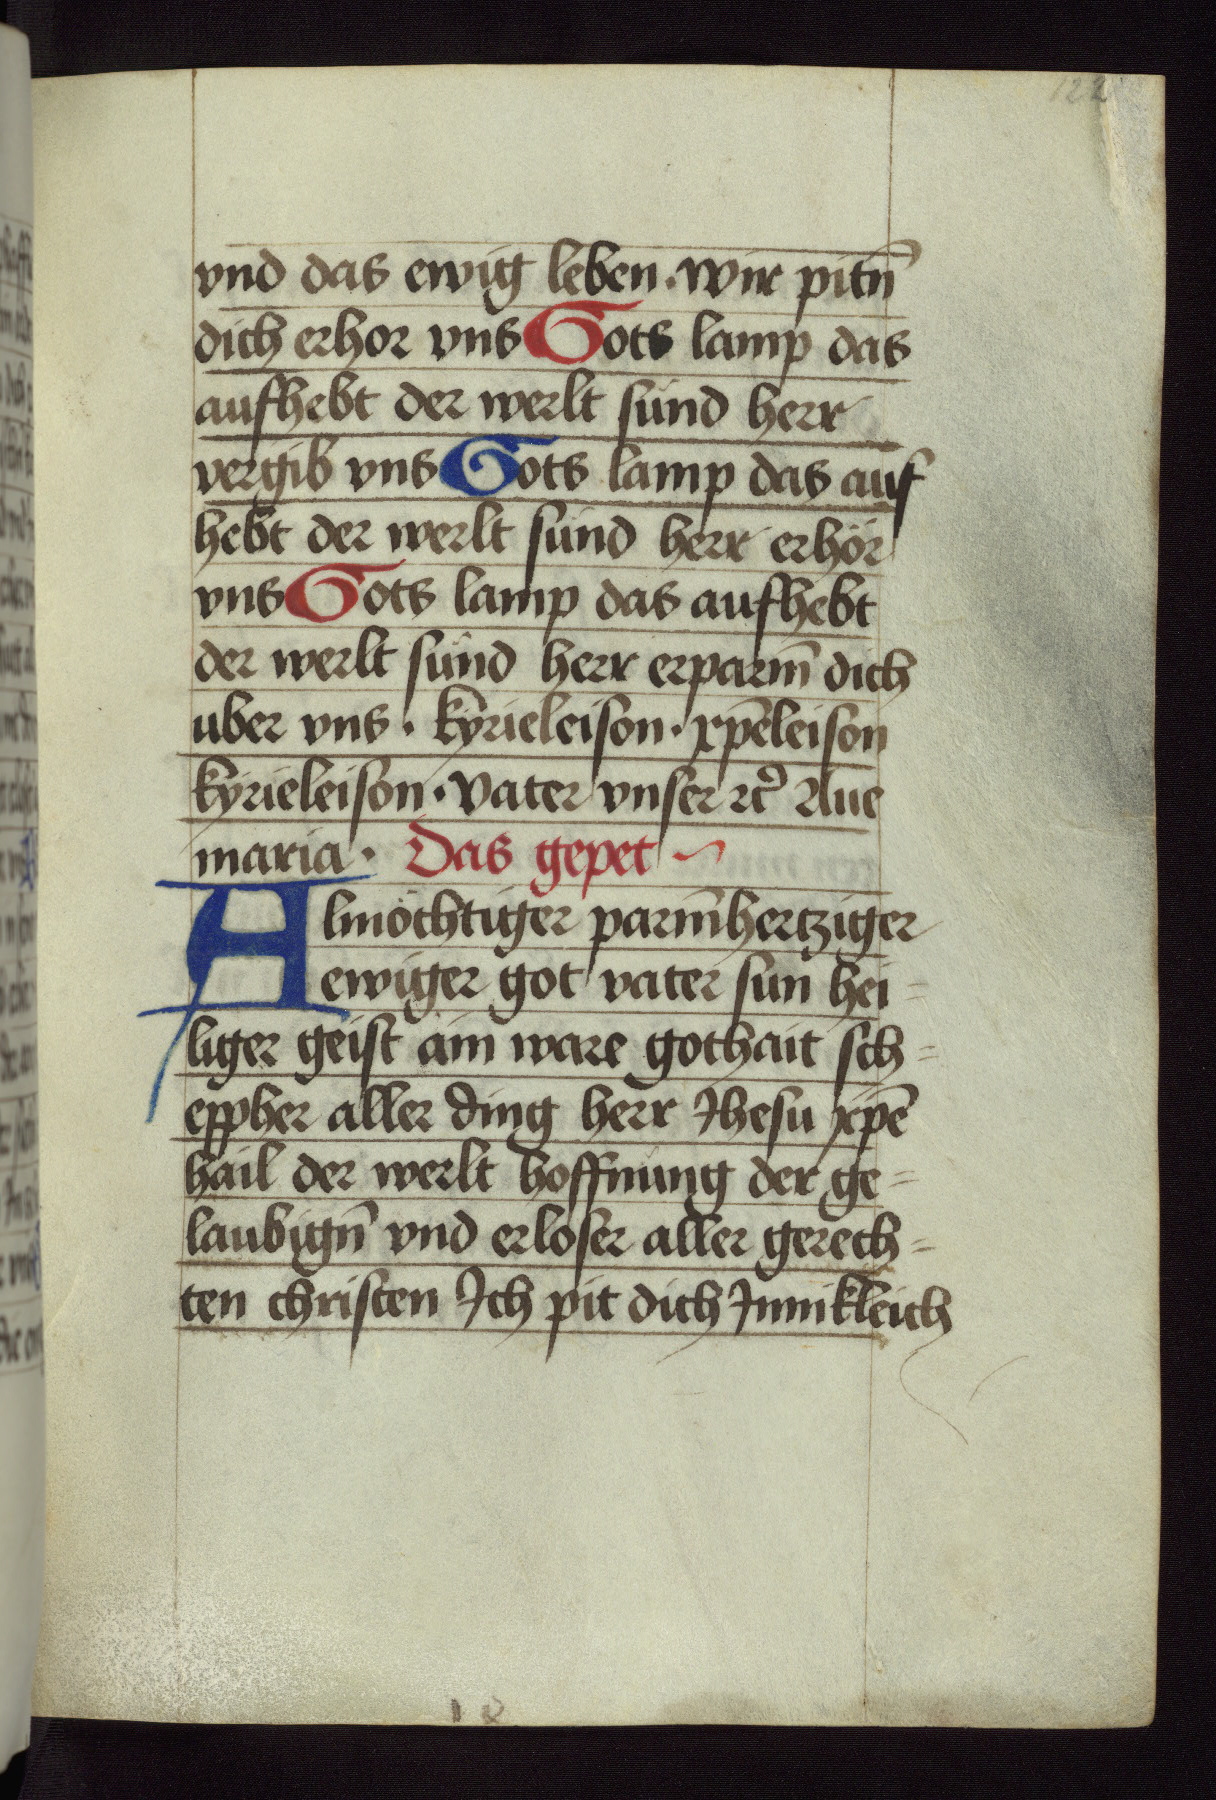 122
vnd das ewig leben · wir pitn̄
dich erhor vns Gots lamp das
aufhebt der werlt sünd herr
vergib vns Gots lamp das auf
hebt der werlt sünd herr erhör
vns Gots lamp das aufhebt
der werlt sünd herr erparm̄ dich
uber vns · kyrieleison · xp̄eleison
kyrieleison · Vater vnser ꝛc̄ Aue
maria · Das gepet ~
Almöchtiger parm̄hertziger
ewiger got vater sun hei=
liger geist ain ware gothait sch=
eppher aller ding herr Jhesu xp̄e
hail der werlt hoffnung der ge=
laubign̄ vnd erloser aller gerech=
ten christen Ich pit dich Jnnikleich